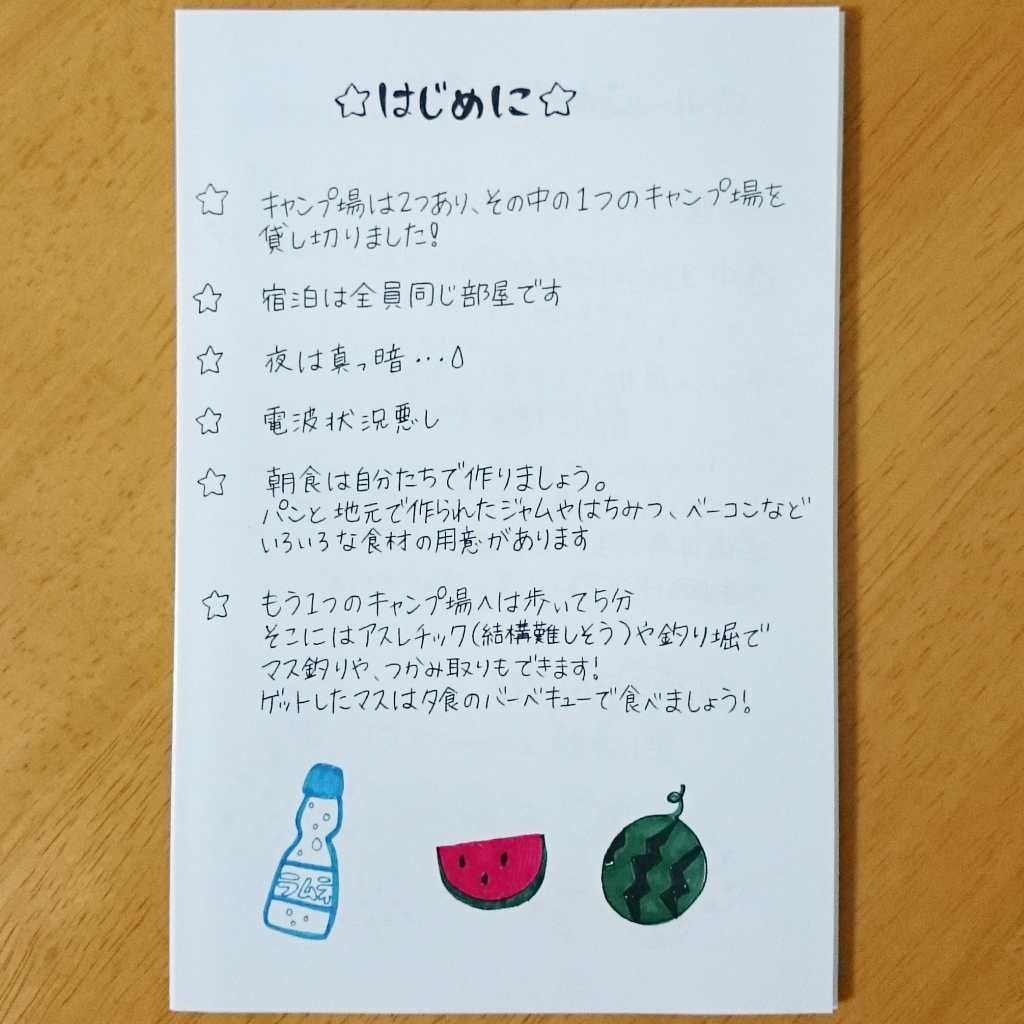 ☆はじめに☆
☆ キャンプ場は2つあり、その中の1つのキャンプ場を
貸し切りました!
☆ 宿泊は全員同じ部屋です
☆ 夜は真っ暗…
☆ 電波状況悪し
☆ 朝食は自分たちで作りましょう。
パンと地元で作られたジャムやはちみつ、ベーコンなど
いろいろな食材の用意があります
☆ もう1つのキャンプ場へは歩いて5分
そこにはアスレチック(結構難しそう)や釣り堀で
マス釣りや、つかみ取りもできます!
ゲットしたマスは夕食のバーベキューで食べましょう!
ラムネ